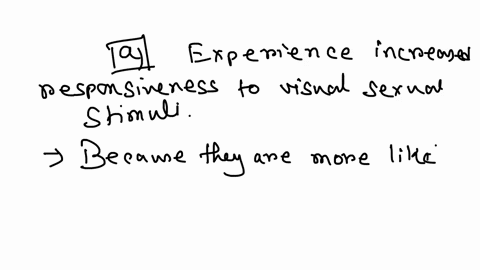 [a] Experience increased
responsiveness to visual sexual
Stimuli.
→ Because they are more like